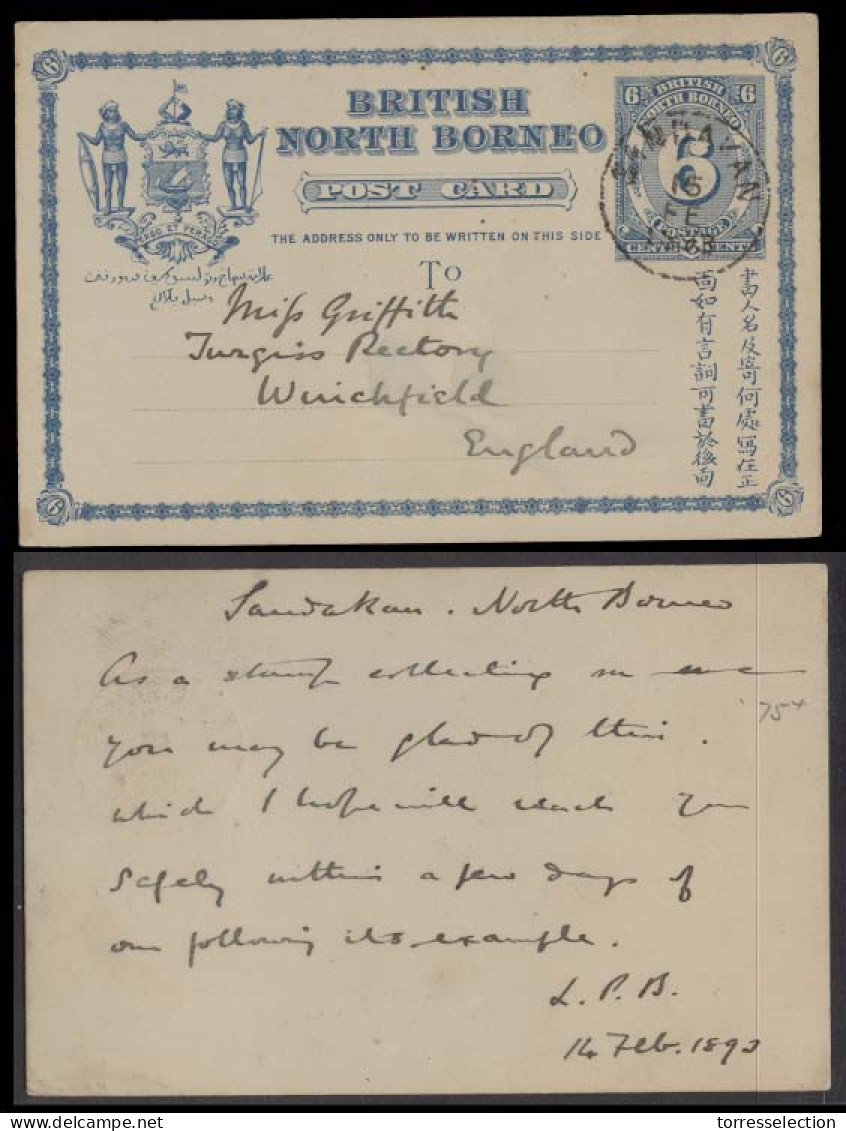 6 6
BRITISH
NORTH BORNEO
POST CARD
THE ADDRESS ONLY TO BE WRITTEN ON THIS SIDE
TO
PERGO ET PERAGO
6 BRITISH 6
NORTH BORNEO
6
POSTAGE
SANDAKAN
15
FE
書人名及寄何處寫在正
面如有言詞可書於後面
Miss Griffith
Turgiss Rectory
Winchfield
England
6 6
Sandakan . North Borneo
As a stamp collecting
you may be glad of this.
which I hope will reach you
safely within a few days of
our following its example.
L. P. B.
14 Feb. 1893
'75+
delcampe.net
torresselection